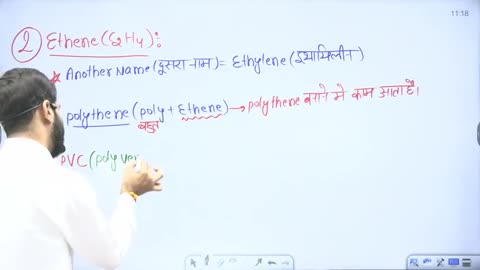 11:18
② Ethene (C₂H₄):
★ Another Name (दुसरा नाम) = Ethylene (इथाईलीन)
Polythene (Poly + Ethene) → Polythene बनाने मे काम आता है।
बहुत
PVC (Poly